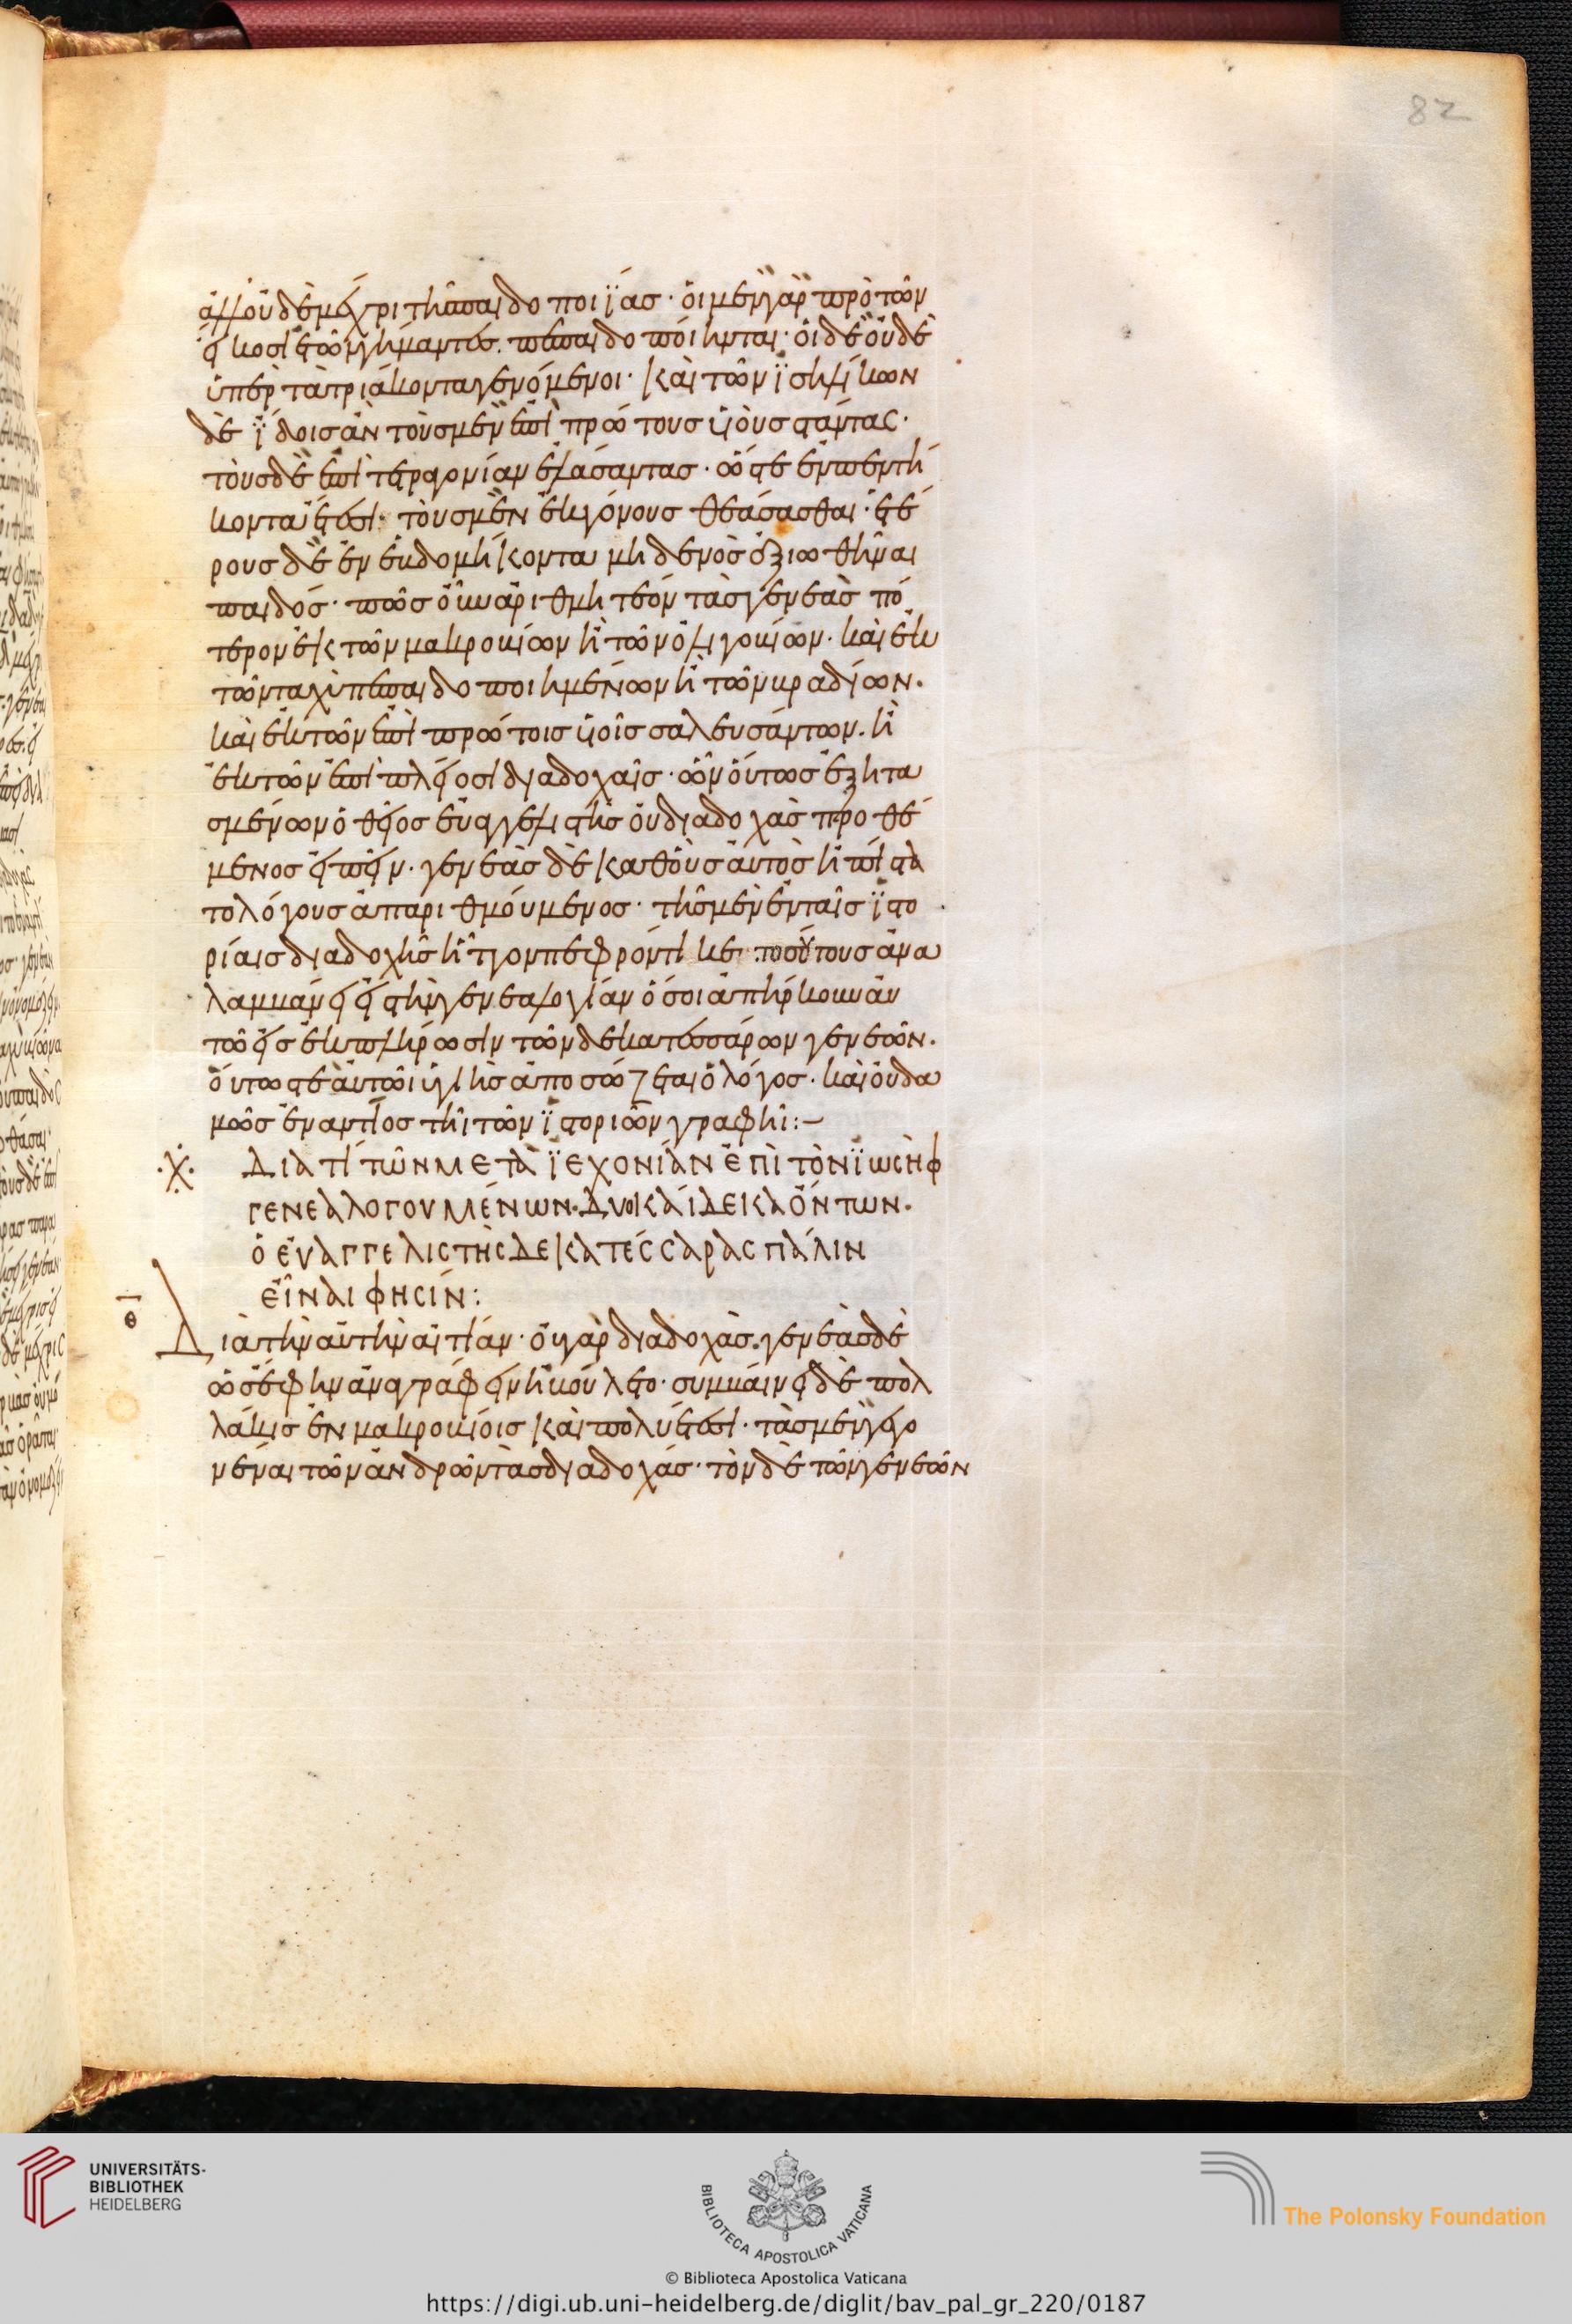 82
ἀλλ' οὐδὲ μέχρι τῆς παιδοποιΐας· οἱ μὲν γὰρ πρὸ τῶν
εἴκοσι ἐτῶν γήμαντες· πεπαιδοποίηνται· οἱ δὲ οὐδὲ
ὑπὲρ τὰ τριάκοντα γενόμενοι· καὶ τῶν ϊσηλίκων
δὲ ἴδοις ἂν τοὺς μὲν ἐπὶ πρώτους υἱοὺς στάντας·
τοὺς δὲ ἐπὶ τεργονίαν ἐλάσαντας· ὥστε ἐν πεντή
κοντα ἔτεσι· τοὺς μὲν ἐκγόνους θεάσασθαι· ἑτέ
ρους δὲ ἐν ἑβδομήκοντα μηδενὸς ἀξιωθῆναι
παιδός· πῶς οὖν ἀριθμητέον τὰς γενεὰς πό
τερον ἐκ τῶν μακροβίων ἢ τῶν ὀλιγοβίων· καὶ ἐκ
τῶν ταχὺ πεπαιδοποιημένων ἢ τῶν βραδίων·
καὶ ἐκ τῶν ἐπὶ πρώτοις υἱοῖς σαλευσάντων· ἢ
ἐκ τῶν ἐπὶ πλείοσι διαδοχαῖς· ὧν οὕτως ἐξητα
σμένων ὁ θεῖος εὐαγγελιστὴς οὐ διαδοχὰς προθέ
μενος εἰπεῖν· γενεὰς δὲ καθ' οὓς αὐτὸς ἠπίστα
το λόγους ἀπαριθμούμενος· τῆς μὲν ἐν ταῖς ϊστο
ρίαις διαδοχῆς ἧττον πεφρόντικε· τοσούτους ἀνα
λαμβάνει εἰς τὴν γενεαλογίαν ὅσοι ἀπήρκουν αὐ
τῷ εἰς ἐκπλήρωσιν τῶν δεκατεσσάρων γενεῶν·
οὕτω τε αὐτῶι ὑγιὴς ἀποσώζεται ὁ λόγος· καὶ οὐδα
μῶς ἐναντίος τῆι τῶν ϊστοριῶν γραφῆι:–
ΔΙΑ ΤΊ ΤΩ͂Ν ΜΕΤᾺ ΪΕΧΟΝΊΑΝ ἘΠῚ ΤῸΝ ΪΩΣῊΦ
ΓΕΝΕΑΛΟΓΟΥΜΈΝΩΝ· ΔΥΟΚΑΊΔΕΚΑ ὌΝΤΩΝ·
Ὁ ΕὐΑΓΓΕΛΙΣΤῊΣ ΔΕΚΑΤΈΣΣΑΡΑΣ ΠΆΛΙΝ
ΕἾΝΑΙ ΦΗΣΊΝ:
θ
Διὰ τὴν αὐτὴν αἰτίαν· οὐ γὰρ διαδοχὰς· γενεὰς δὲ
ὡς ἔφην ἀναγράφειν ἠβούλετο· συμβαίνει δὲ πολ
λάκις ἐν μακροβίοις καὶ πολυέτεσι· τὰς μὲν γεγο
νέναι τῶν ἀνδρῶν τὰς διαδοχάς· τὸν δὲ τῶν γενεῶν
UNIVERSITÄTS-
BIBLIOTHEK
HEIDELBERG
BIBLIOTECA APOSTOLICA VATICANA
© Biblioteca Apostolica Vaticana
The Polonsky Foundation
https://digi.ub.uni-heidelberg.de/diglit/bav_pal_gr_220/0187